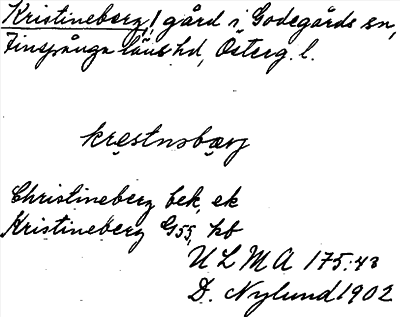 Kristineberg, gård i Godegårds sn,
Finspånga läns hd, Österg. l.
krestnsbærj
Christineberg bek, ek
Kristineberg G55, hb
ULMA 175:43
D. Nylund 1902